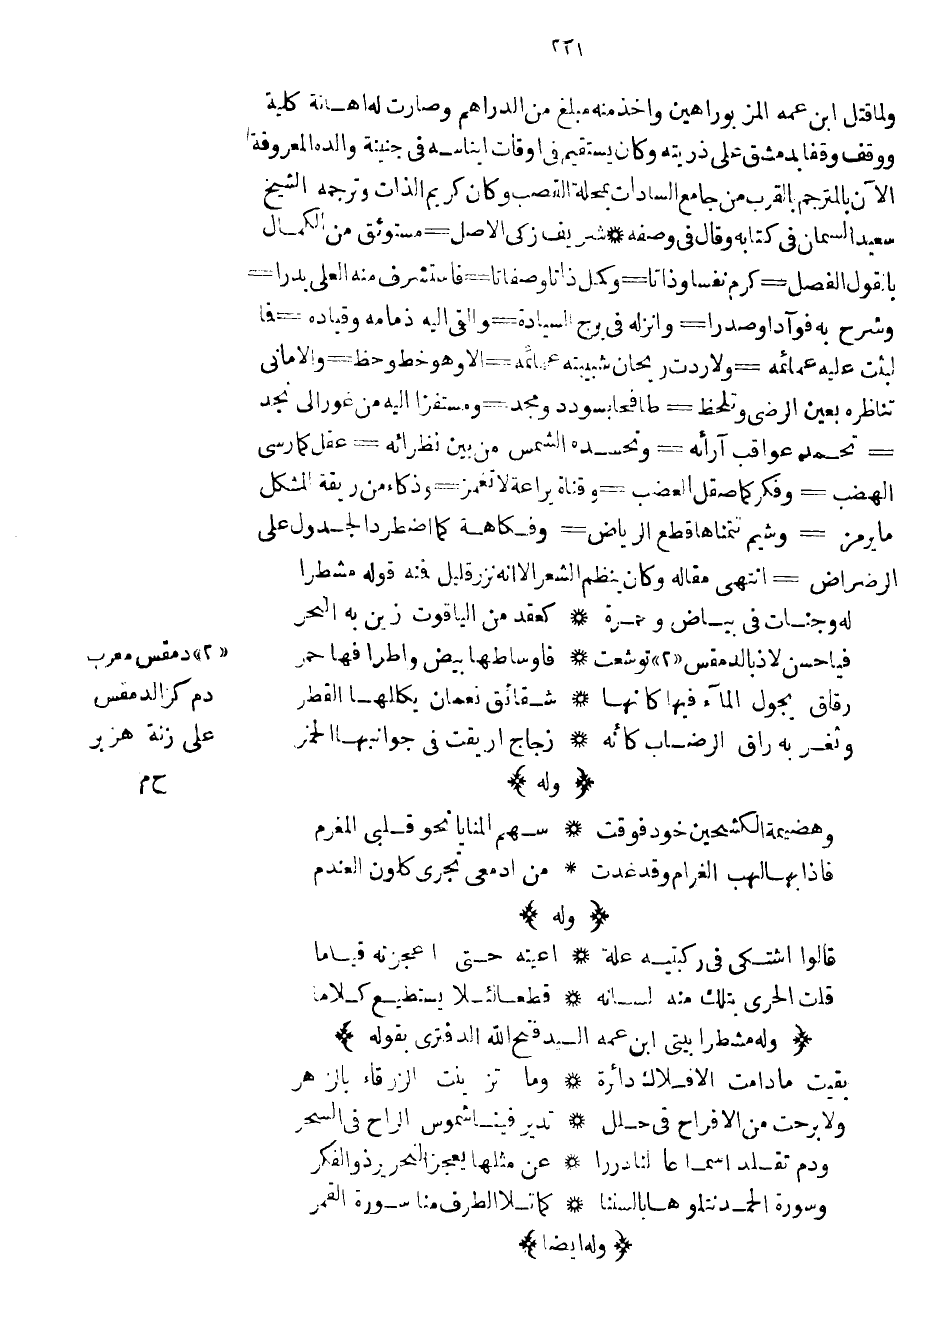 ٢٢١
ولما قتل ابن عمه المزبور اهين واخذ منه مبلغ من الدراهم وصارت له اهانة كلية
ووقف وقفا بدمشق على ذريته وكان يستقيم فى اوقات ايناسه فى جنينة والده المعروفة
الآن بالمترجم بالقرب من جامع السادات بمحلة القصب وكان كريم الذات وترجمه الشيخ
سعيد السمان فى كتابه وقال فى وصفه * شريف زكى الاصل = مستوثق من الكمال
بانقول الفصل = كرم نفسا وذاتا = وكمل ذاتا وصفاتا = فاستشرف منه العلى بدرا =
وشرح به فوآدا وصدرا = وانزله فى بوج السيادة = والقى اليه ذمامه وقياده = فا
لبثت عليه عمائمه = ولا ردت ريحان شبيبته = الا وهو خط وحظ = والامانى
تناظره بعين الرضى وتلحظ = طافحا بسودد ومجد = ومستفزا اليه من غور الى نجد
= تحمد عواقب آرائه = وتحسده الشمس من بين نظرائه = عقل كما رسى
الهضب = وفكر كما صقل العضب = وقناة يراعة لا تغمز = وذكاء من ريقة المشكل
ما يرمز = وشيم تتمناها قطع الرياض = وفكاهة كما اضطرد الجدول على
الرضراض = انتهى مقاله وكان ينظم الشعر الا انه نزر قليل فمنه قوله مشطرا
له وجنات فى بياض وحمرة * كعقد من الياقوت زين به النحر
فيا حسن لاذ بالدمقس «٢» توشعت * فاوساطها بيض واطرافها حمر
رقاق يجول المآء فيها كانها * شقائق نعمان يكالها القطر
وثغر به راق الرضاب كأنه * زجاج اريقت فى جوانبها الخمر
﴿ وله ﴾
وهضيمة الكشحين خود فوقت * سهم المنايا نحو قلبى المغرم
فاذا بها لهب الغرام وقد غدت * من ادمعى تجرى كلون العندم
﴿ وله ﴾
قالوا اشتكى فى ركبتيه علة * اعيته حتى اعجزته قياما
قلت الحرى بتلك منه لسانه * قطعا لئلا يستطيع كلاما
﴿ وله مشطرا بيتى ابن عمه السيد فتح الله الدفترى بقوله ﴾
بقيت ما دامت الافلاك دائرة * وما تزينت الزرقاء بالزهر
ولا برحت من الافراح فى حلل * تدير فينا شموس الراح فى السحر
ودم تقلد اسماعا لنا دررا * عن مثلها يعجز النحرير ذو الفكر
وسورة الحمد نتلوها بالسننا * كما تلا الطرف منا سورة القمر
﴿ وله ايضا ﴾
«٢» دمقس معرب
دم كز الدمقس
على زنة هزبر
ح م